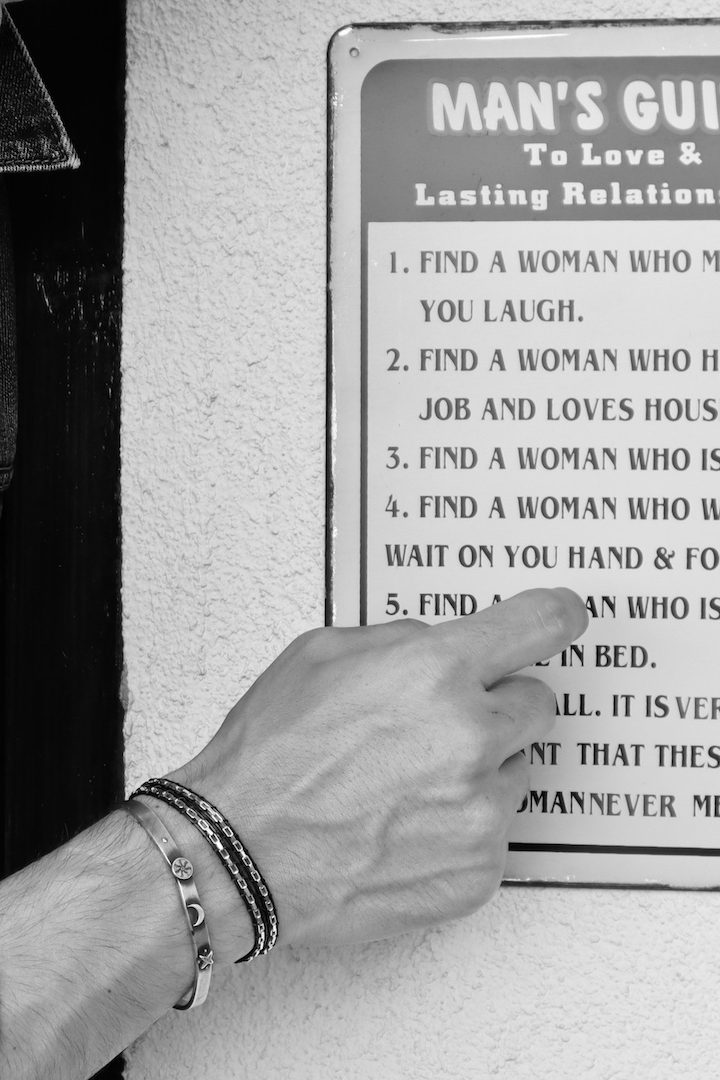 MAN'S GUI
To Love &
Lasting Relations
1. FIND A WOMAN WHO M
YOU LAUGH.
2. FIND A WOMAN WHO H
JOB AND LOVES HOUS
3. FIND A WOMAN WHO IS
4. FIND A WOMAN WHO W
WAIT ON YOU HAND & FO
5. FIND A AN WHO IS
IN BED.
ALL. IT IS VER
NT THAT THES
OMAN NEVER ME